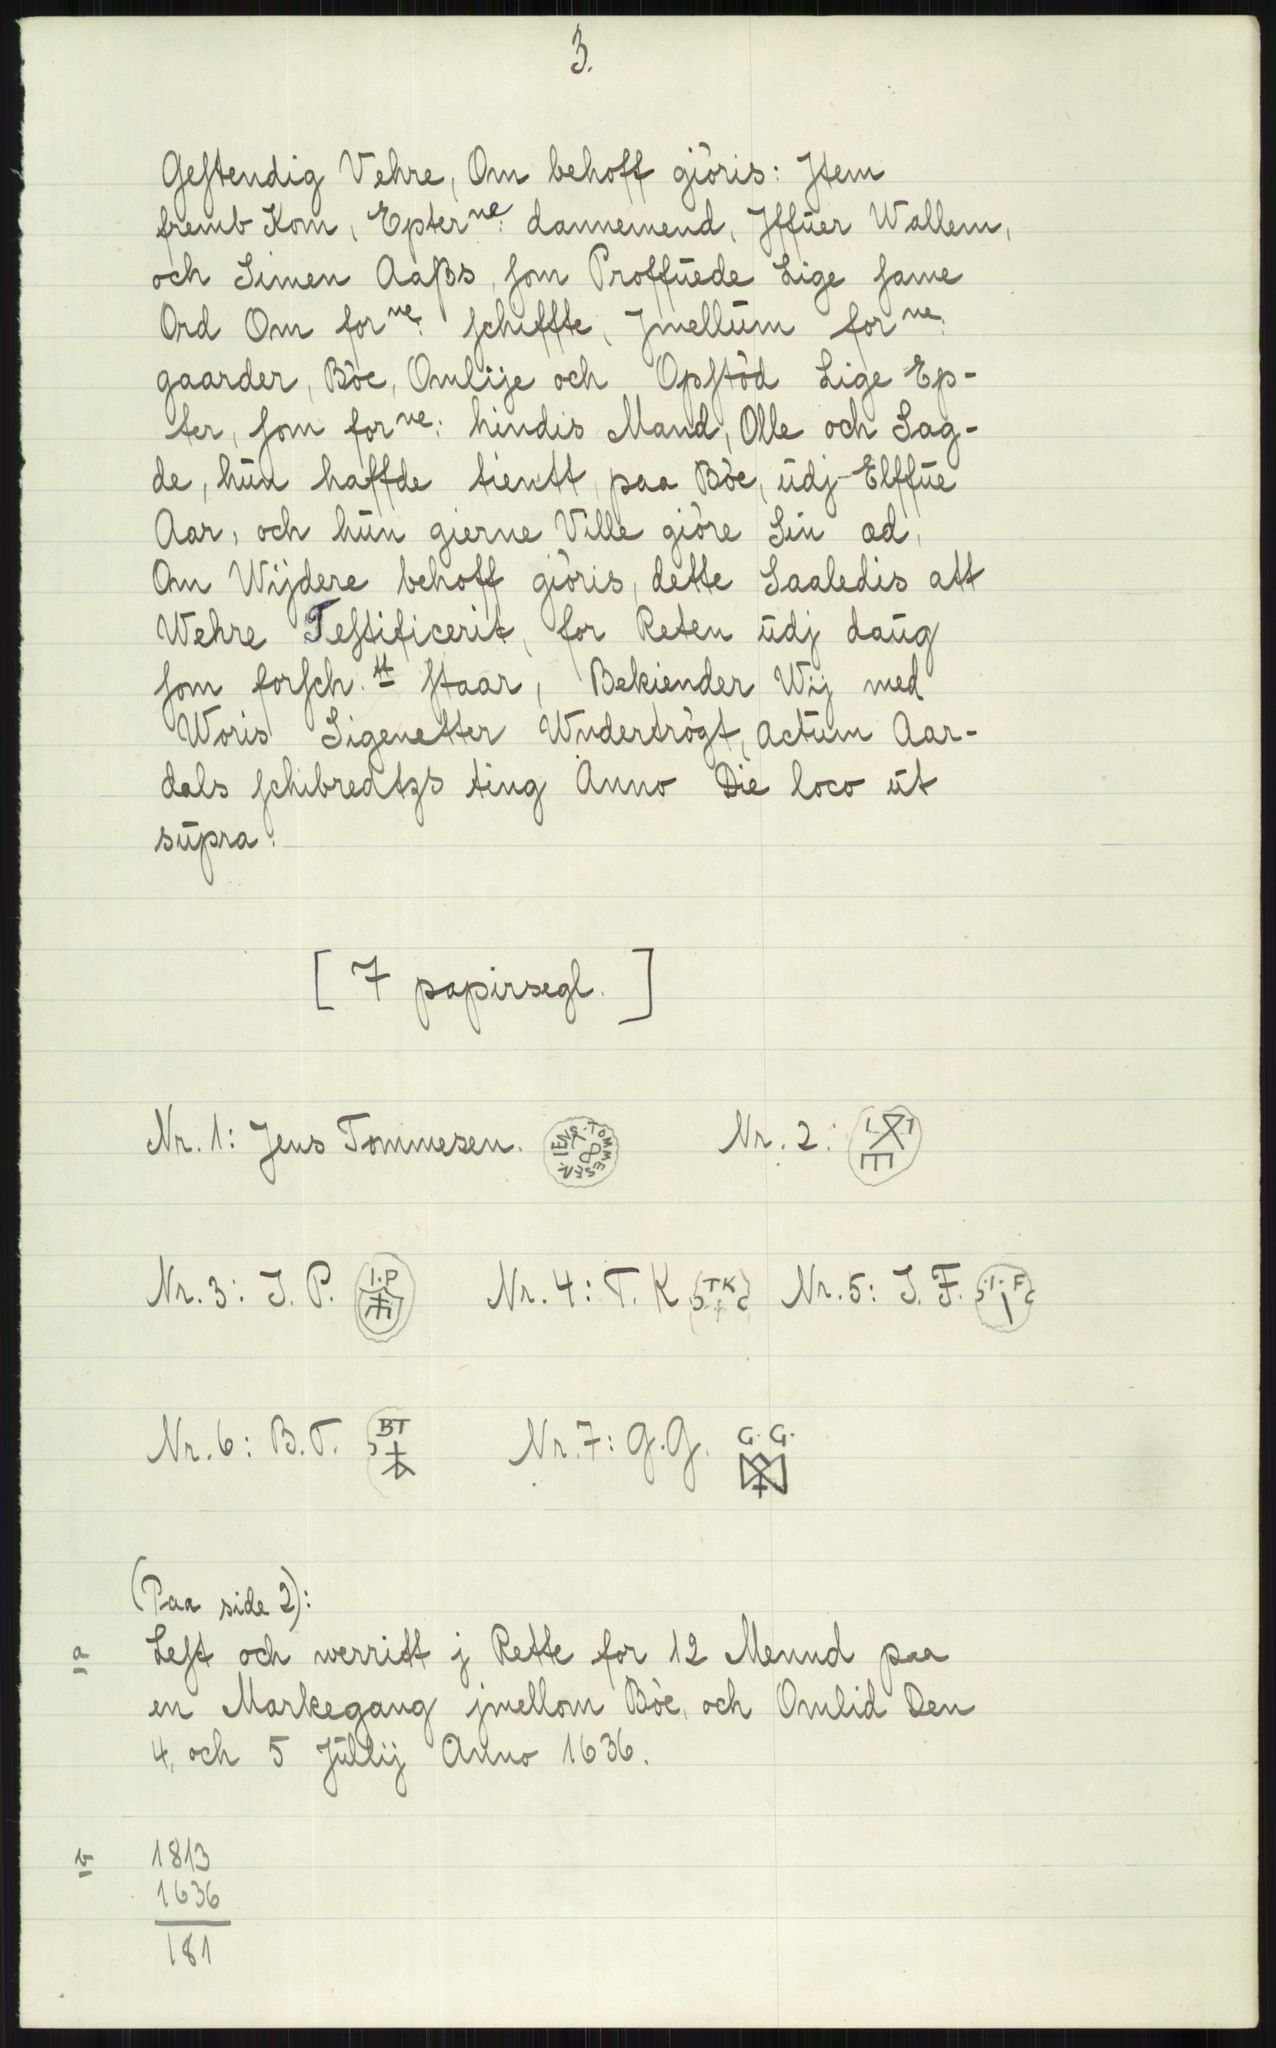 3.
Gestendig Vehre, Om behoff giöris: Jtem
fremb Kom, Epterne: dannemend, Jffüer Wallem,
och Simen Aaßs, som Proffüede Lige same
Ord Om forne: schiffte, Jmellüm forne:
gaarder, Böe, Omlije och Opstöd Lige Ep-
ter, som forne: hindis Mand, Olle och Sag-
de, hün haffde tientt, paa Böe, üdj Elffüe
Aar, och hün gierne Ville giöre Sin æd,
Om Wijdere behoff giöris, dette Saaledis att
Wehre Testificerit, for Reten üdj daüg
som forsch.tt staar, Bekiender Wij med
Woris Sigenetter Wndertrögt, Actüm Aar-
dals schibreatzs ting Anno Die loco üt
süpra.
[ 7 papirsegl. ]
Nr. 1: Jens Tommesen. IENS TOMMESEN Nr. 2: I. T
Nr. 3: J. P. I.P Nr. 4: T. K TK Nr. 5: J. F. I. F
Nr. 6: B. T. BT Nr. 7: G. G. G. G.
(Paa side 2):
a Lest och werritt j Rette for 12 Mennd paa
en Markegang jmellom Böe, och Omlid Den
4, och 5 Jüllij Anno 1636.
b 1813
1636
181